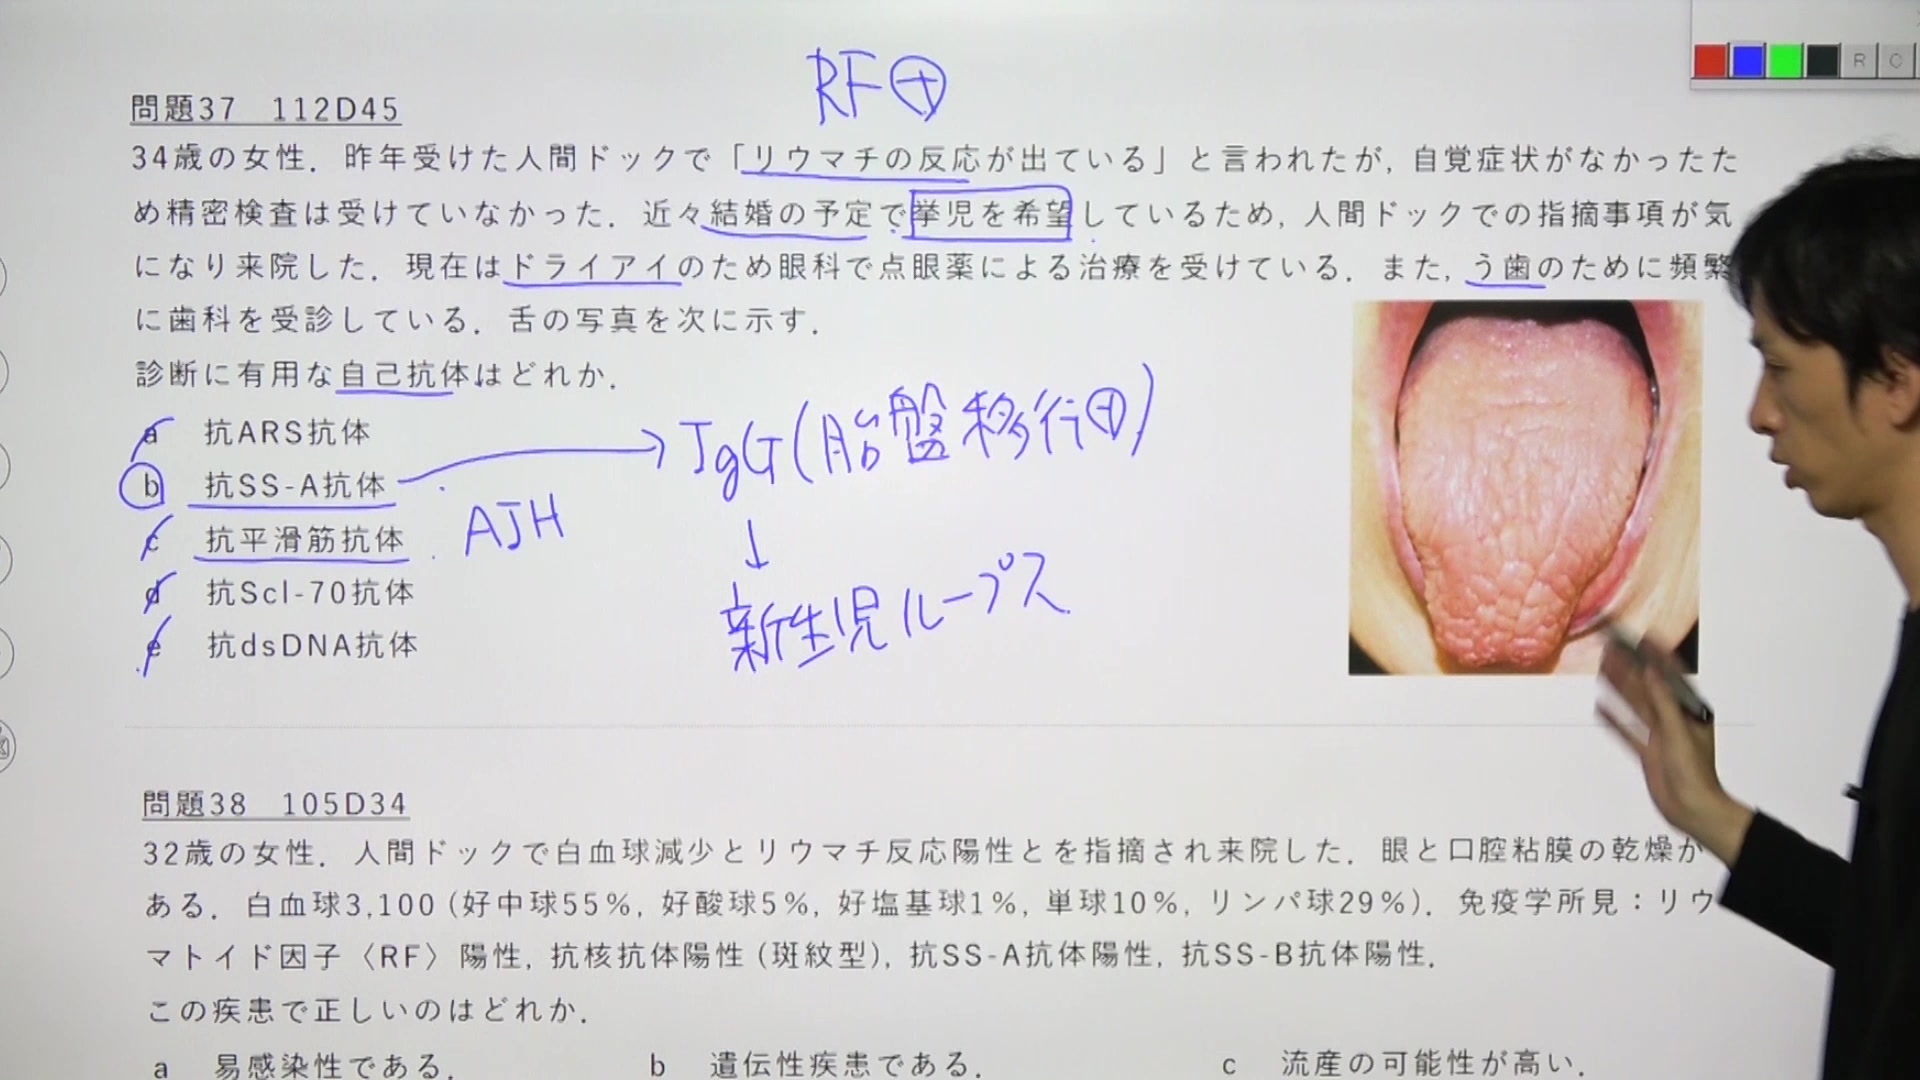 RF⊕
R C
問題37 112D45
34歳の女性．昨年受けた人間ドックで「リウマチの反応が出ている」と言われたが, 自覚症状がなかったた
め精密検査は受けていなかった．近々結婚の予定で挙児を希望しているため, 人間ドックでの指摘事項が気
になり来院した．現在はドライアイのため眼科で点眼薬による治療を受けている．また, う歯のために頻繁
に歯科を受診している．舌の写真を次に示す．
診断に有用な自己抗体はどれか．
a 抗ARS抗体
b 抗SS-A抗体
c 抗平滑筋抗体
d 抗Scl-70抗体
e 抗dsDNA抗体
→ IgG(胎盤移行⊕)
AIH
↓
新生児ループス
問題38 105D34
32歳の女性．人間ドックで白血球減少とリウマチ反応陽性とを指摘され来院した．眼と口腔粘膜の乾燥が
ある．白血球3,100 (好中球55%, 好酸球5%, 好塩基球1%, 単球10%, リンパ球29%)．免疫学所見：リウ
マトイド因子〈RF〉陽性, 抗核抗体陽性 (斑紋型), 抗SS-A抗体陽性, 抗SS-B抗体陽性．
この疾患で正しいのはどれか．
a 易感染性である． b 遺伝性疾患である． c 流産の可能性が高い．